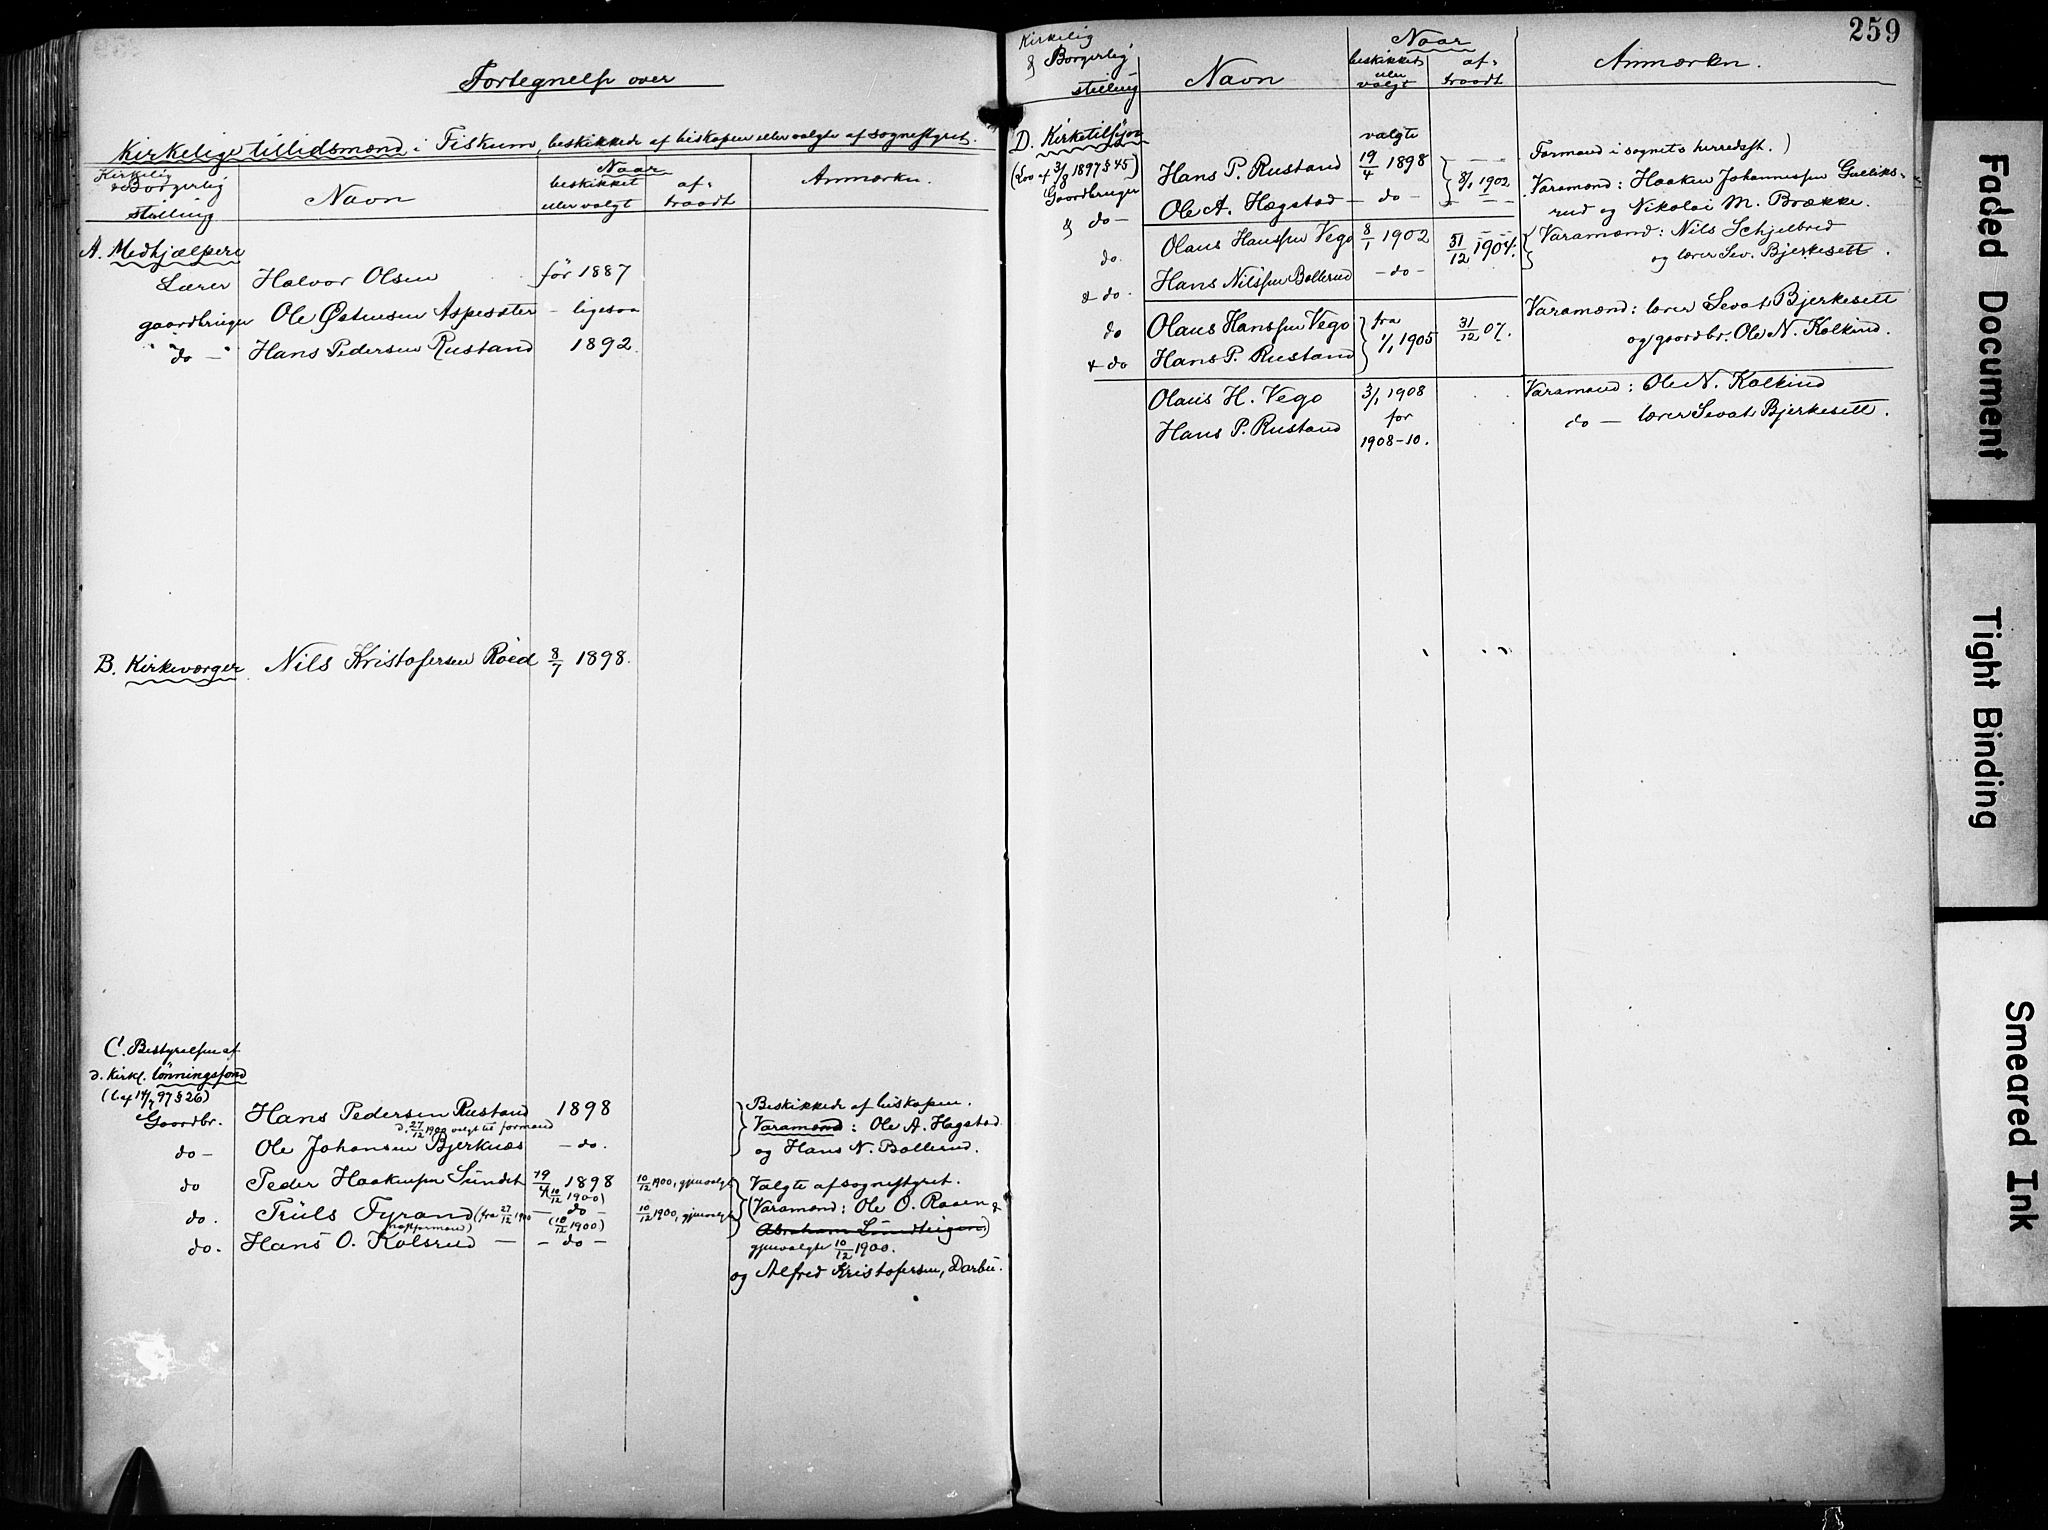 Fortegnelse over
Kirkelige tillidsmænd i Fiskum, beskikkede af biskopen eller valgte af sognestyret.
Kirkelig & Borgerlig stilling
Navn
Naar
beskikket eller valgt
af-traadt
Anmærkn.
A. Medhjælpere
Lærer Halvor Olsen før 1887
gaardbruger Ole Østensen Aspesæter - ligesaa
" do - " Hans Pedersen Rustand 1892.
B. Kirkeværger Nils Kristofersen Røed 8/7 1898.
C. Bestyrelsen af
d. kirkl. lønningsfond
(l. af 14/7 97 § 26)
Gaardbr. Hans Pedersen Rustand 1898 Beskikkede af biskopen.
d. 27/12 1900 valgt til formand Varamænd: Ole A. Hægstad
do - Ole Johansen Bjerknæs - do. og Hans N. Bollerud.
do Peder Haakensen Sundet 19/4 1898 (10/12 1900) 10/12 1900, gjenvalgt Valgte af sognestyret.
do. Truls Fyrand (fra 27/12 1900 - do - (10/12 1900) 10/12 1900, gjenvalgt (Varamænd: Ole O. Raaen &
do. Hans O. Kolsrud - - do - Abraham Sundteigen)
gjenvalgte 10/12 1900.
og Alfred Kristofersen, Darbu.
259
Kirkelig
& Borgerlig
stilling
Navn
Naar
beskikket eller valgt
af-traadt
Anmærkn.
D. Kirketilsyn valgte
(Lov af 3/8 1897 § 45) Hans P. Rustand 19/4 1898 - - - Formænd i sognets herredsst.)
Gaardbruger 8/1 1902 Varamænd: Haaken Johannessen Gulliks-
& do - Ole A. Hægstad - do - rud og Nikolai M. Brække.
do. Olaus Hanssen Vego 8/1 1902 31/12 1904. Varamænd: Nils Schjelbred
& do. Hans Nilssen Bollerud - do - og lærer Sev. Bjerkesett.
do Olaus Hanssen Vego fra 1/1 1905 31/12 07. Varamænd: lærer Sevat Bjerkesett
& do Hans P. Rustand og gaardbr. Ole N. Kolkind.
Olaus H. Vego 3/1 1908 Varamænd: Ole N. Kolkind
Hans P. Rustand for do - lærer Sevat Bjerkesett.
1908-10.
Faded Document
Tight Binding
Smeared Ink